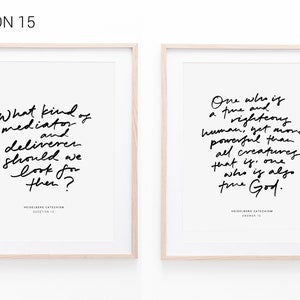 ON 15
What kind of
mediator
and
deliverer
should we
look for
then?
HEIDELBERG CATECHISM
QUESTION 15
One who is
a true and
righteous
human, yet more
powerful than
all creatures
that is, one
who is also
true God.
HEIDELBERG CATECHISM
ANSWER 15